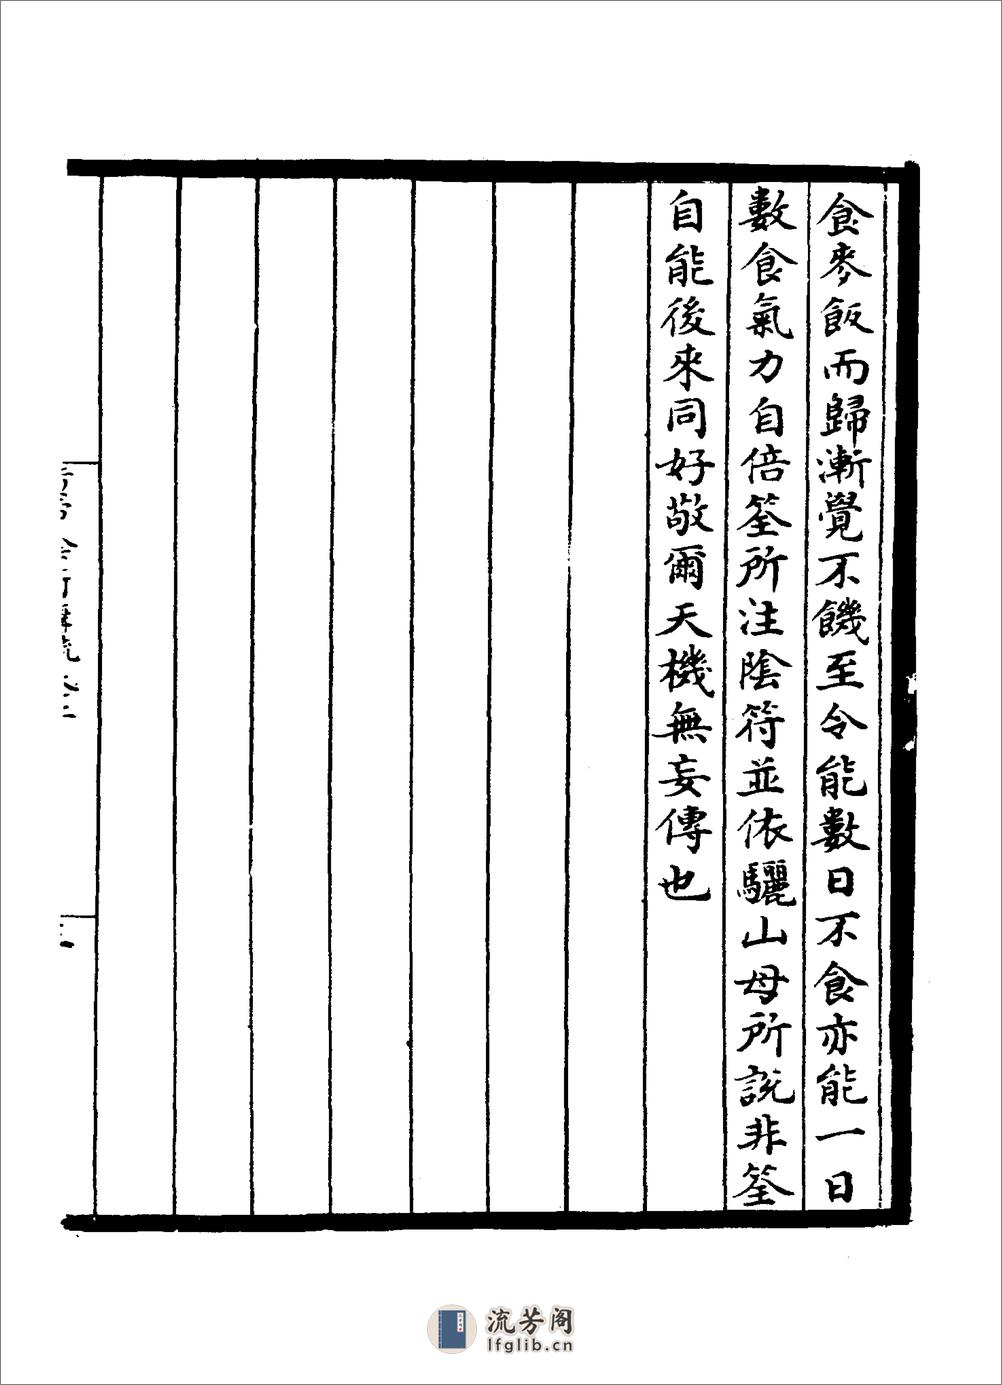 食麥飯而歸漸覺不饑至令能數日不食亦能一日
數食氣力自倍筌所注陰符並依驪山母所說非筌
自能後來同好敬爾天機無妄傳也
流芳阁
lfglib.cn